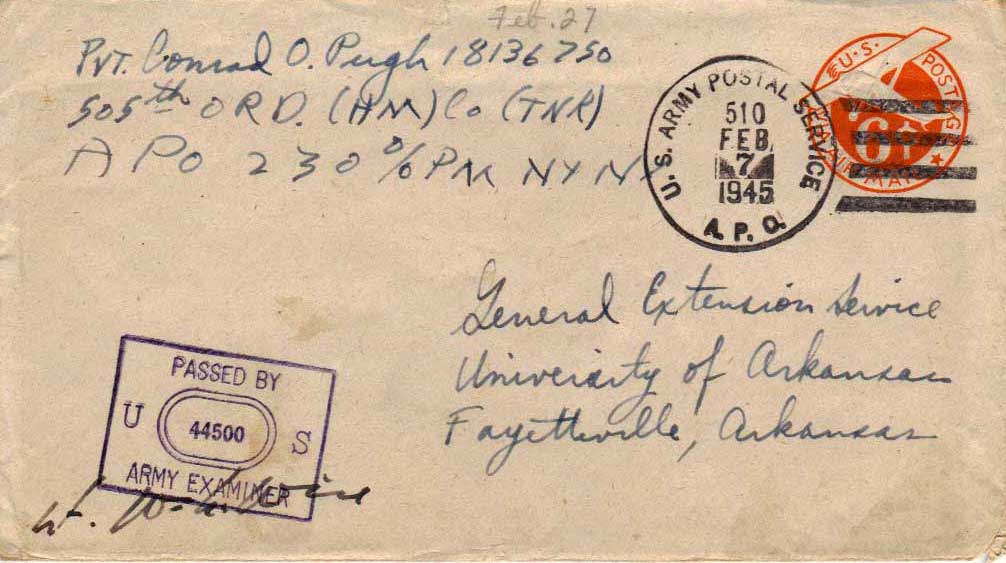 Feb. 27
Pvt. Conrad O. Pugh 18136750
505th ORD. (HM) Co (TNK)
APO 230 % PM NY NY
U.S. ARMY POSTAL SERVICE
510
FEB
7
1945
A.P.O.
U.S. POSTAGE
6¢
VIA AIR MAIL
General Extension Service
University of Arkansas
Fayetteville, Arkansas
PASSED BY
U 44500 S
ARMY EXAMINER